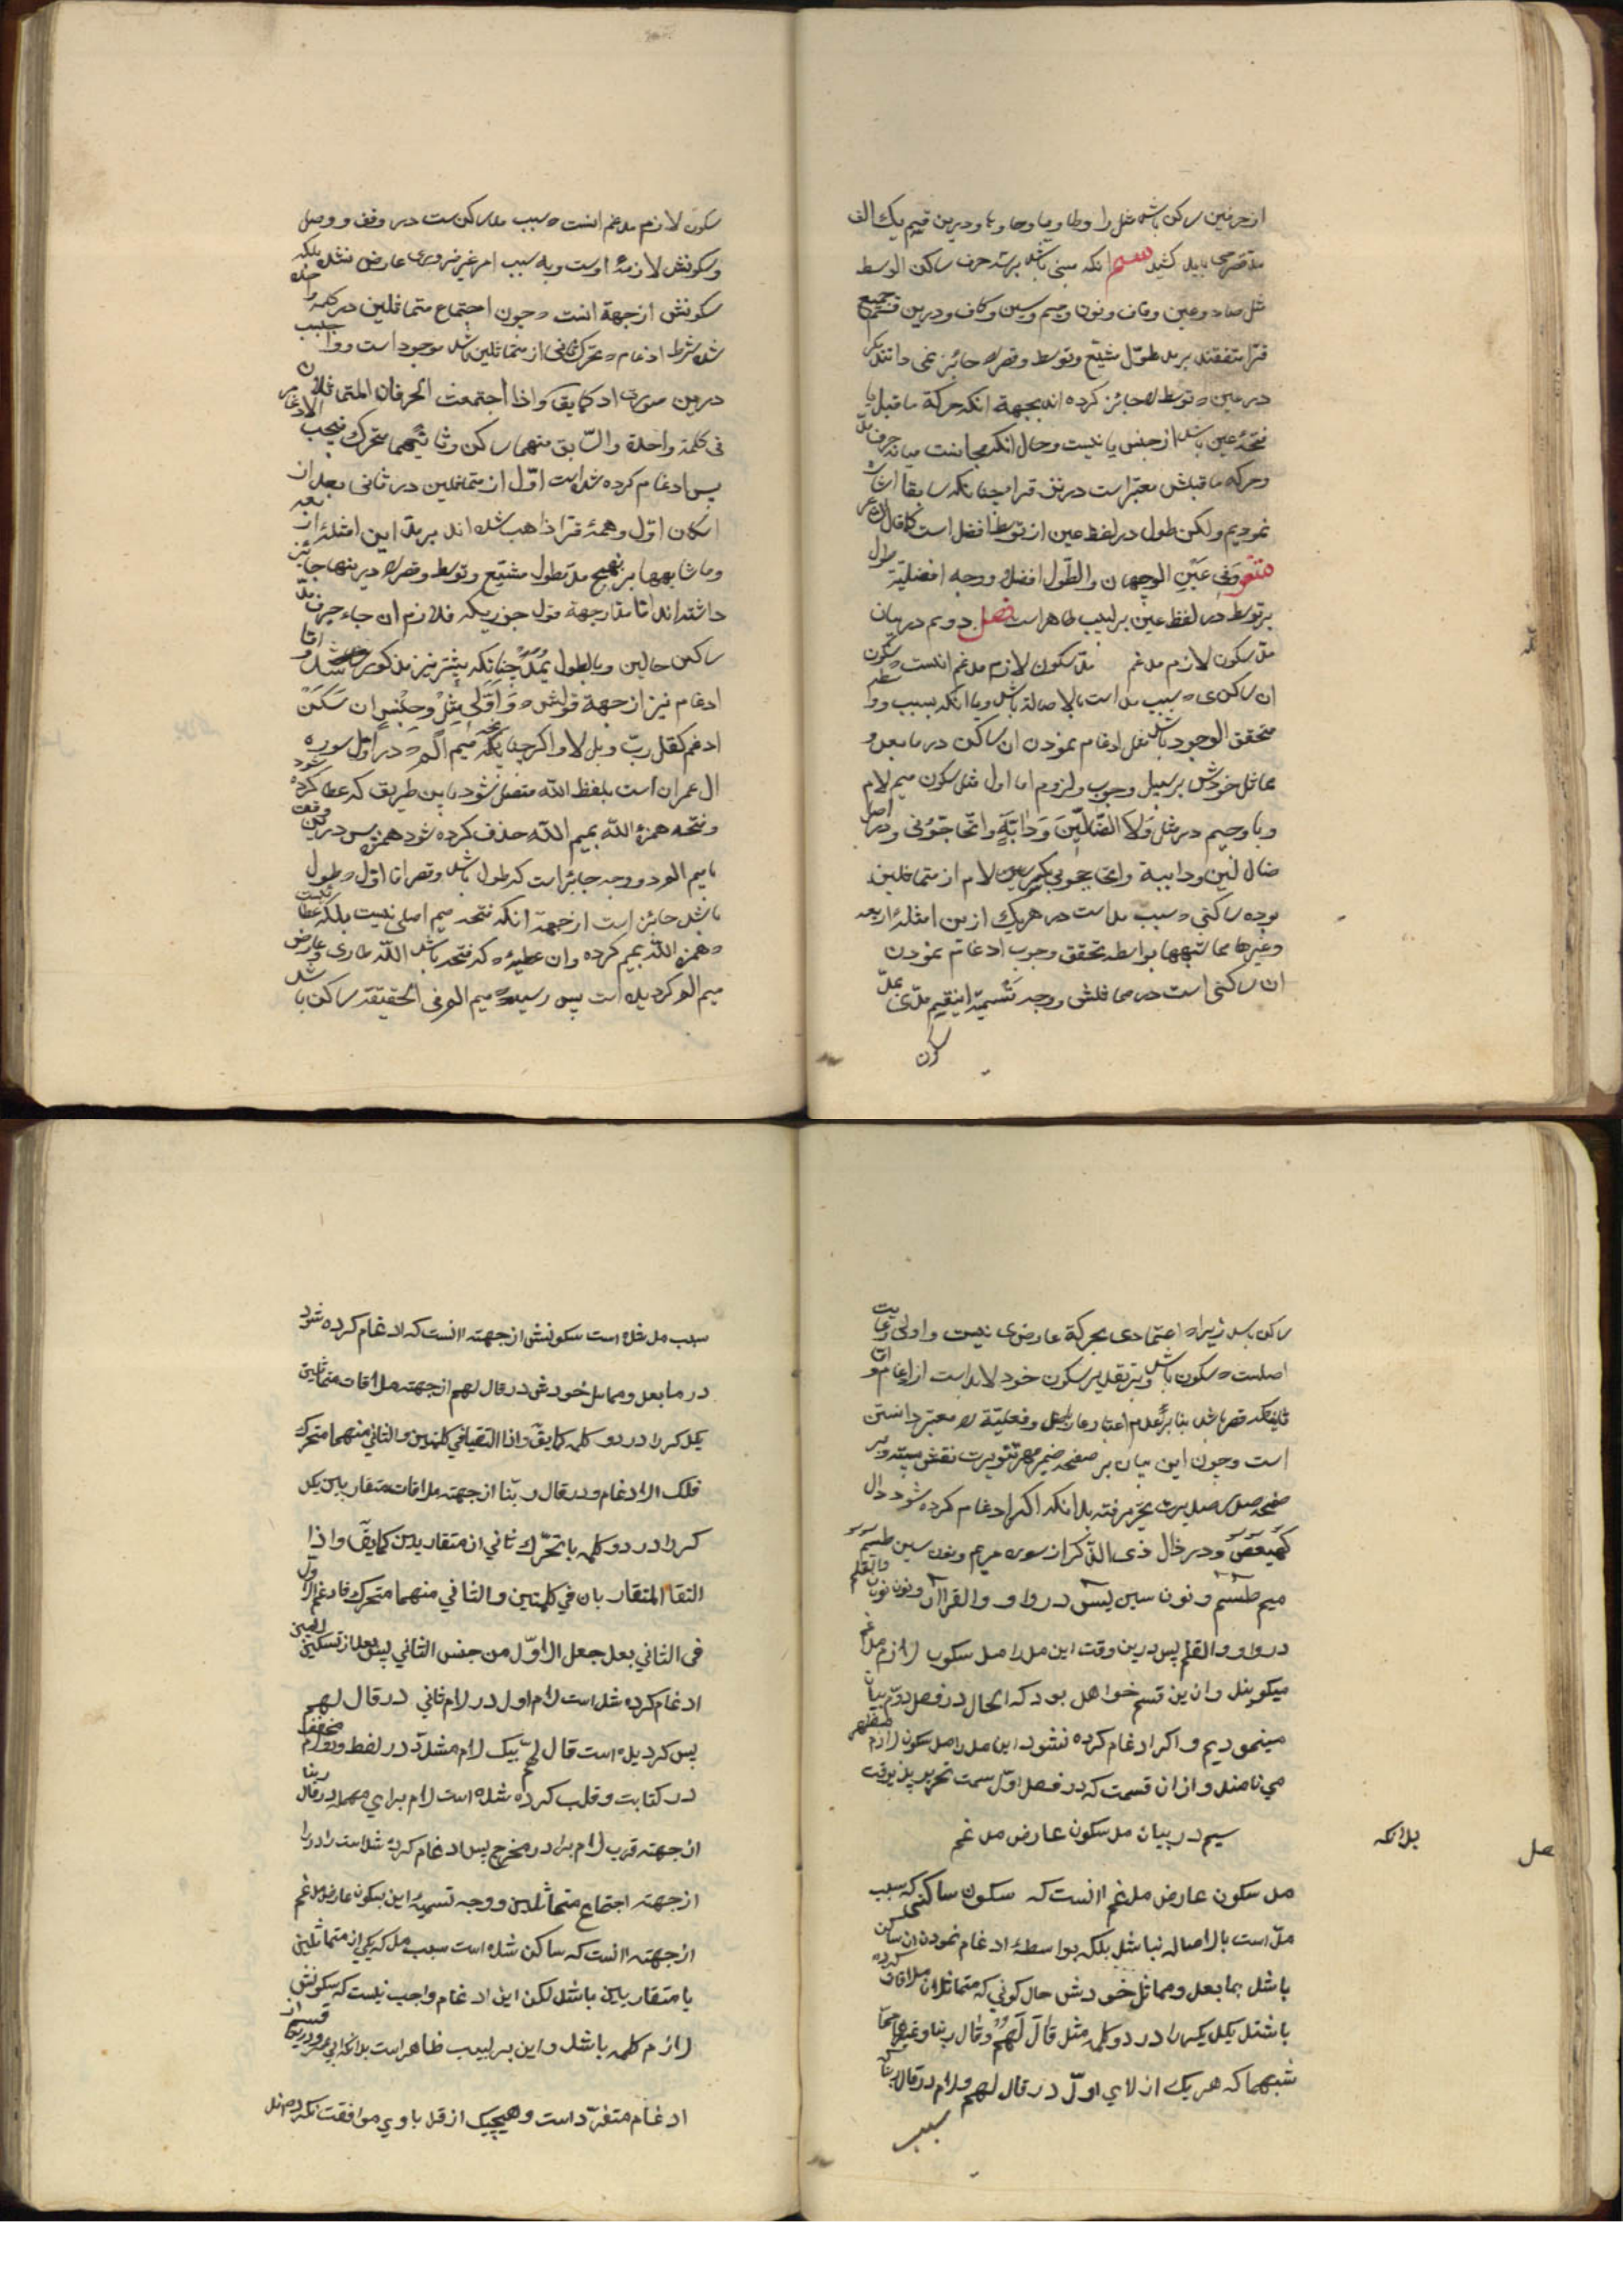 از حرفین ساکن باشد مثل را و طا و یا و حا و ها و درین قسم یک الف
مد قصر می باید کشید قسم انکه مبنی باشد بر سه حرف ساکن الوسط
مثل صاد و عین و قاف و نون و میم و سین و کاف و درین قسم جمیع
قرا متفقند بر مد طول مشبع و توسط و قصر را جائز نمی دانند مکر
در عین که توسط را جائز کرده اند بجهة انکه حرکة ما قبل یا
فتحهٔ عین باشد از جنس یا نیست و حال انکه مجانست میانه حرف مد
و حرکه ما قبلش معتبر است در نزد قرا چنانکه سابقا اشاره
نمودیم ولکن طول در لفظ عین از توسط افضل است کما قال
وفی عین الوجهان والطول افضل و وجه افضلیّة طول
بر توسط در لفظ عین بر لبیب ظاهر است فصل دویم در بیان
مدّ سکون لازم مدغم مدّ سکون لازم مدغم انست که سکون
ان ساکنی که سبب مد است بالاصالة باشد و یا انکه بسبب و واسطه
متحقق الوجود باشد مثل ادغام نمودن ان ساکن در ما بعد و
مماثل خودش بر سبیل وجوب و لزوم اما اول مثل سکون میم لام
و با و جیم در مثل وَلَا الضّالّین وَدابّةٍ واتحاجّونی و در اصل
ضاللین و داببة واتحاججونی بکسر لام از متماثلین
بوده ساکنی که سبب مد است در هر یک ازین امثلهٔ اربعه
وغیرها مما شبهها بواسطه تحقق وجوب ادغام نمودن
ان ساکنی است در مماثلش و وجه تسمیهٔ اینقسم مدّی بمدّ
سکون
سکون لازم مدغم انست که سبب مد ساکن ست در وقف و وصل
و سکونش لازمهٔ اوست و به سبب امر غیر ضروری عارض نشده بلکه
سکونش از جهة انست که چون اجتماع متماثلین در کلمه واحده
شد شرط ادغام که تحرک ثانی از متماثلین باشد موجود است و واجب
درین صورت ادغام کما یقال واذا اجتمعت الحرفان المتماثلان
فی کلمة واحدة والسّابق منهما ساکن وثانیهما متحرک فیجب الادغام
پس ادغام کرده شده است اوّل از متماثلین در ثانی بعد از
اسکان اوّل و همهٔ قرا ذاهب شده اند بر مدّ این امثلهٔ اربعه
وما شابهها بر نهج مدّ بطول مشبع و توسط و قصر را درینها جائز
داشته اند اما مد از جهة قول جزریکه فلازم ان جاء حرف مدّ
ساکن حالین وبالطول یمدّ چنانکه پیشتر نیز مذکور شد و اما
ادغام نیز از جهة قولش که واوّلی مثل وجنس ان سکن
ادغم کقل ربّ وبل لا و اکر چنانکه میم الم که در اوّل سوره
ال عمران است بلفظ الله متصل شود باین طریق که عطا کرده شود
و فتحه همزهٔ اللّه بمیم اللّه حذف کرده شود همزه پس درین وقت
با میم الم دو وجه جائز است که طول باشد و قصر اما اوّل که طول
باشد جائز است از جهة انکه فتحه میم اصلی نیست بلکه عطا
همزه اللّه بمیم کرده و ان عطیهٔ که فتحه باشد اللّه طاری و عارض
میم الم کردیده است پس رسیده میم الم فی الحقیقة ساکن باشد
ساکن باشد زیراکه اعتمادی بحرکة عارضی نیست و اولی رعایت
اصلست که سکون باشد و بر تقدیر سکون خود لابد است از ادغام و اما
ثانی که قصر باشد بنا بر عدم اعتبار عارض و فعلیّة را معتبر داشتن
است و چون این بیان بر صفحه ضمیر مهر تنویرت نقش بسته و بر
صفحه صدرت تحریر رفته بدانکه اکر ادغام کرده شود دال
کهیعص و در خال ذی الذکر از سوره مریم و نون سین طسم
میم طسم و نون سین یسن در واو والقران و نون نون والقلم
در واو والقلم پس درین وقت این مد را مد سکون لازم مدغم
میکویند و ازین قسم خواهد بود که الحال در فصل دوّم بیان
مینمودیم و اکر ادغام کرده نشود این مد را مد سکون لازم مظهر
می نامند و از ان قسمت که در فصل اوّل سمت تحریر پذیرفت
سیم در بیان مد سکون عارض مدغم
بدانکه
مد سکون عارض مدغم انست که سکون ساکنی که سبب
مدّ است بالاصاله نباشد بلکه بواسطهٔ ادغام نمودن ان ساکن
باشد بما بعد و مماثل خودش حال کونی که متماثلان ملاقات کرده
باشند یکدیکر را در دو کلمه مثل قالَ لَهُم و قال ربنا وغیرهما مما
شبههما که هر یک از لای اوّل در قال لهم و لام در قال ربنا
سبب
سبب مد شده است سکونش از جهت انست که ادغام کرده شود
در ما بعد و مماثل خودش در قال لهم از جهته ملاقات متماثلین
یکدیکر را در دو کلمه کما یقال واذا التقیا فی کلمتین والثانی منهما متحرک
فلک الادغام و در قال ربّنا از جهته ملاقات متقاربین یکد
کر را در دو کلمه با تحرّک ثانی از متقاربین کما یقال واذا
التقا المتقاربان فی کلمتین والثانی منهما متحرک فادغم الاول
فی الثانی بعد جعل الاوّل من جنس الثانی پس بعد از تسکین
ادغام کرده شده است لام اول در لام ثانی در قال لهم
پس کردیده است قال لهم بیک لام مشدّد در لفظ و دو لام مخفف
در کتابت و قلب کرده شده است لام برای مهمله در قال ربنا
از جهته قرب لام برا در مخرج پس ادغام کرده شده است را در را
از جهته اجتماع متماثلین و وجه تسمیهٔ این بسکون عارض مدغم
از جهته انست که ساکن شده است سبب مد که یکی از متماثلین
یا متقاربین باشد لکن این ادغام واجب نیست که سکونش
لازم کلمه باشد و این بر لبیب ظاهر است بدانکه ابی عمرو درین قسم از
ادغام متفرّد است و هیچیک از قراء با وی موافقت نکرده اند